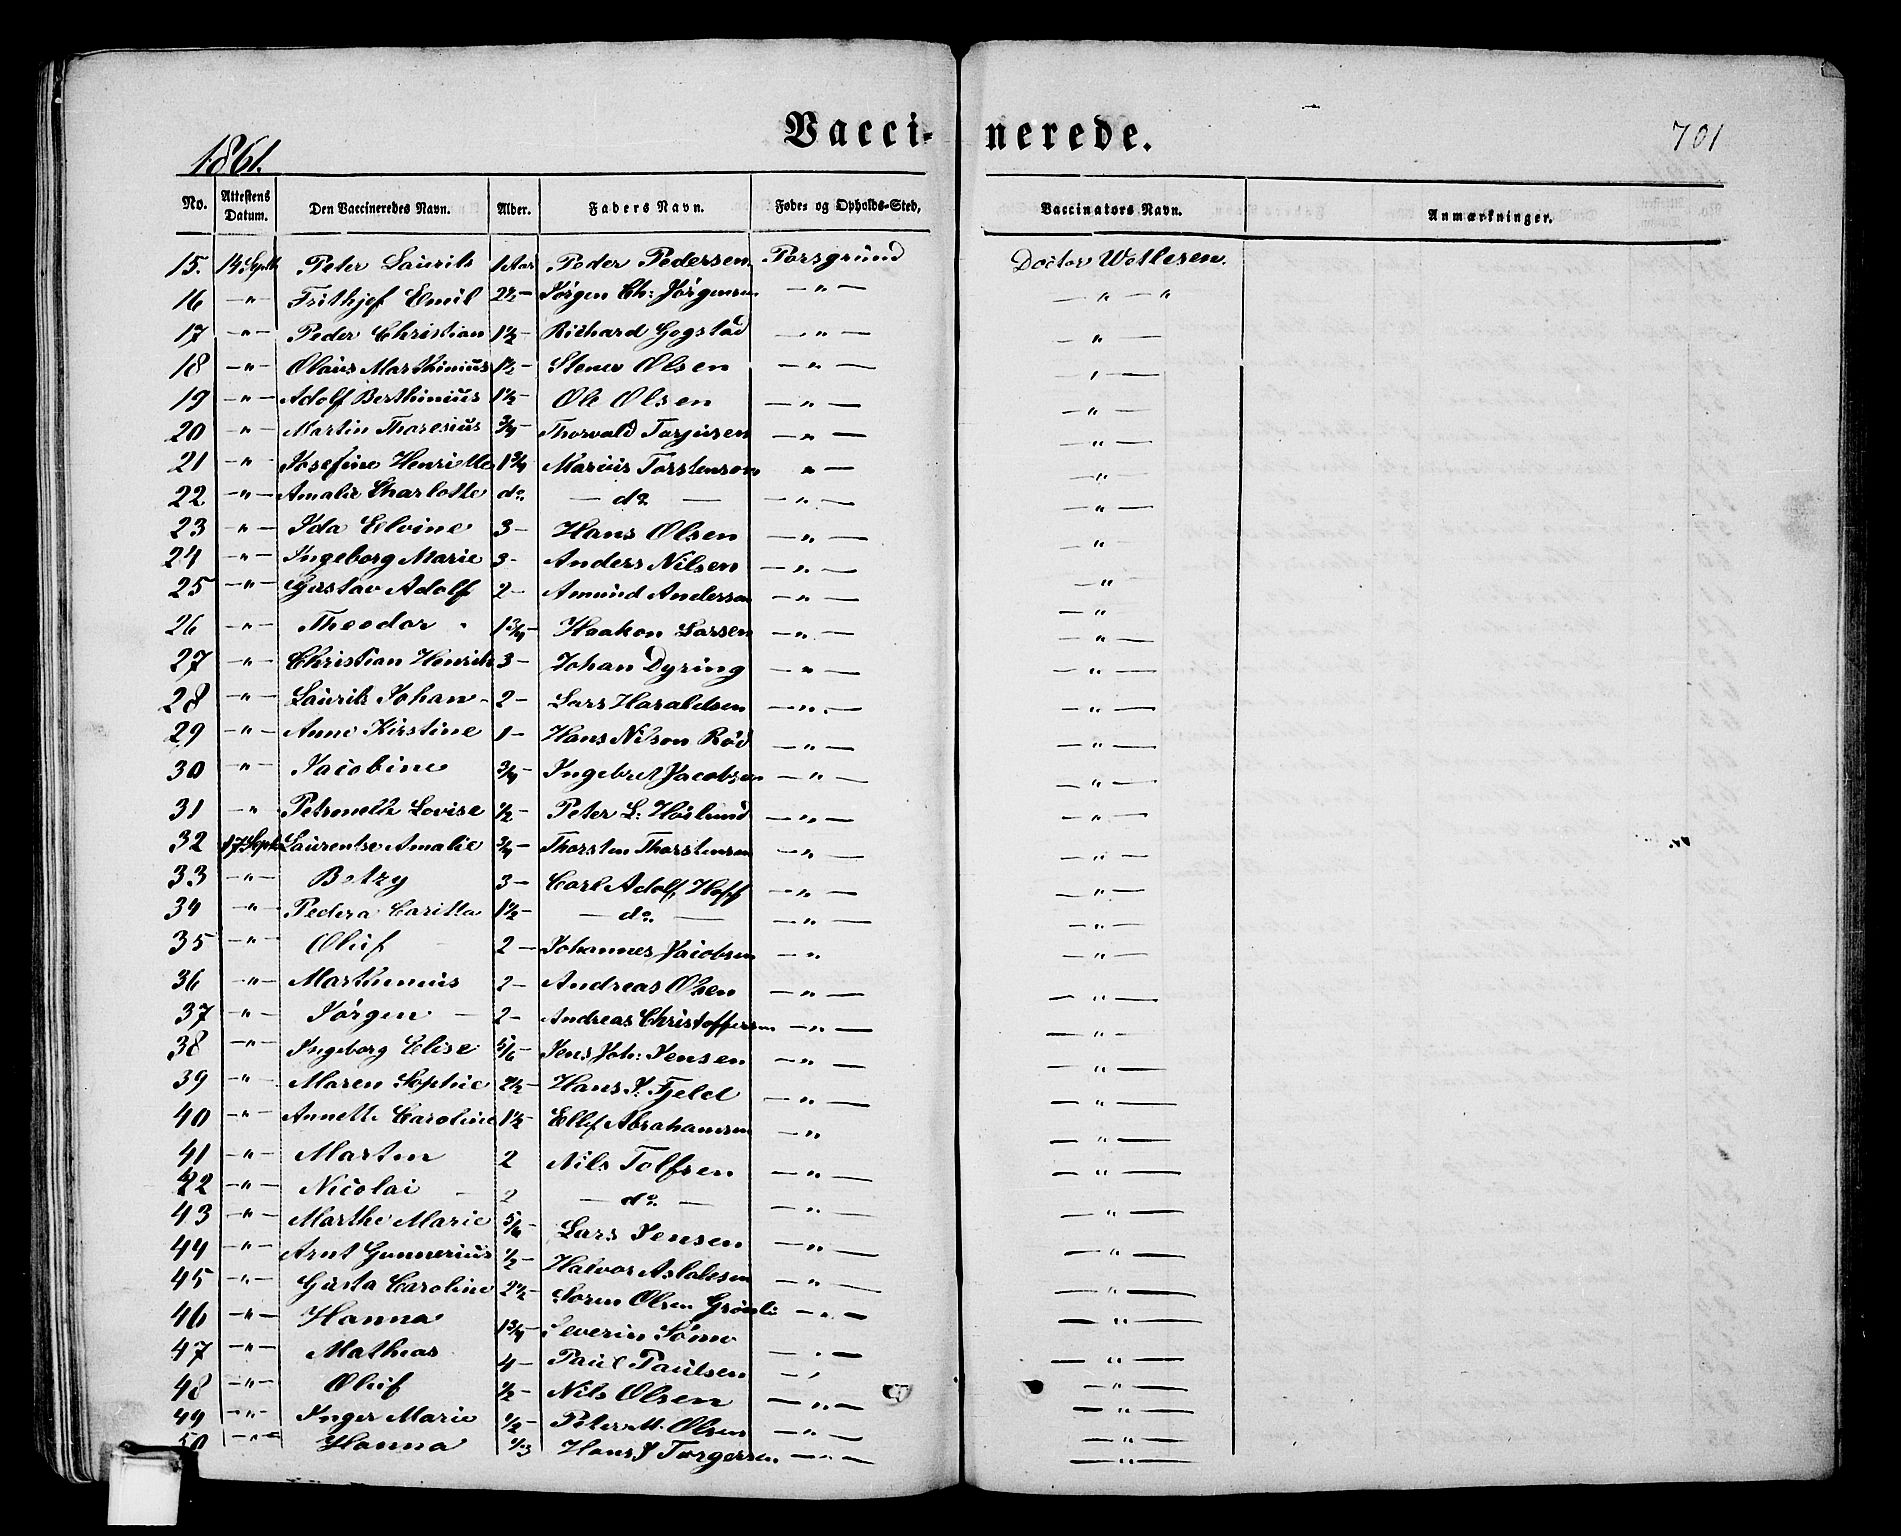 Vaccinerede.
701
1861.
No. Attestens Datum. Den Vaccineredes Navn. Alder. Faders Navn. Føde- og Opholds-Sted, Vaccinators Navn. Anmærkninger.
15. 14 Septb Peter Laurits 1 Aar Peder Pedersen Porsgrund Doctor Wetlesen.
16 —"— Frithjof Emil 2½— Jørgen Ch: Jørgensen —"— —"—"
17 —"— Peder Christian 1½— Richard Gogstad —"— —"—
18 —"— Olaus Marthinius 1½— Stener Olsen —"— —"—
19 —"— Adolf Berthinius 1½— Ole Olsen —"— —"—
20 —"— Martin Thoresius ¾— Thorvald Torjusen —"— —"—
21 —"— Josefine Henriette 1¾ Marius Torstenson "— —"—
22 —"— Amalie Charlotte do. — do — —"— —"—
23 —"— Ida Elvine 3— Hans Olsen —"— —"—
24 —"— Ingeborg Marie 3- Anders Nilsen —"— —"—
25 —"— Gustav Adolf 2— Amund Anderson —"— —"—
26 —"— Theodor 1¾— Haakon Larsen —"— —"—
27 —"— Christian Henrik 3— Johan Dyring —"— —"—
28 —"— Laurits Johan 2— Lars Haraldsen —"— —"—
29 —"— Anne Kirstine 1— Hans Nilson Rød —"— —"—
30 —"— Jacobine ¾— Ingebret Jacobsen —"— —"—
31 —" Petronelle Lovise ½— Peter L: Høslund —"— —"—
32 17 Septb Laurentse Amalie ¾— Thorsten Thorstensen —"— —"—
33 —"— Betzy 3— Carl Adolf Hoff —"— —"—
34 —"— Pedera Carilla 1½— — do. — —"— —"—
35 —"— Oluf 2— Johannes Jacobsen —" —"—
36 —"— Marthinius 2— Andreas Olsen —"— —"—
37 —"— Jørgen — 2— Andreas Christoffersen —"— —"—
38 —"— Ingeborg Elise 5/6— Jens Joh: Jensen —"— —"—
39 —"— Maren Sophie 2½— Hans J. Fjeld —"— —"—
40 —"— Annette Caroline 1½— Ellef Abrahamsen —" —"—
41 —"— Martin 2 Nils Tolfsen —"— —"—
42 —"— Nicolai — 2 — do. — —"— —"—
43 —"— Marthe Marie 5/6— Lars Jensen —"— —"—
44 —"— Arnt Gunnerius ½— Halvor Aslaksen —"— —"—
45 —"— Gusta Caroline 2½— Søren Olsen Grønli —"— —"—
46 —"— Hanna 1¾— Severin —"— —"—
47 —"— Mathias 4— Paul Paulsen —" —"—
48 —"— Oluf ½— Nils Olsen —"— —"—
49 —"— Inger Marie ½— Peter M. Olsen —"— —"—
50 —"— Hanna Hans J Torgersen —"— —"—